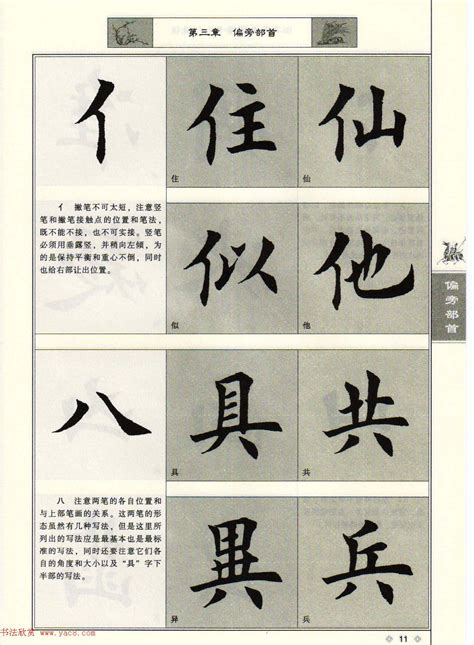 第三章 偏旁部首
亻 住 仙
住 仙
亻 撇笔不可太短，注意竖
笔和撇笔接触点的位置和笔法，
既不能不接，也不可实接。竖笔
必须用垂露竖，并稍向左倾，为
的是保持平衡和重心不倒，同时
也给右部让出位置。
似 他
似 他
八 具 共
具 共
八 注意两笔的各自位置和
与上部笔画的关系。这两笔的形
态虽然有几种写法，但是这里所
列出的写法应是最基本也是最标
准的写法，同时还要注意它们各
自的角度和大小以及“具”字下
半部的写法。
異 兵
异 兵
偏旁部首
11
书法欣赏 www.yac8.com